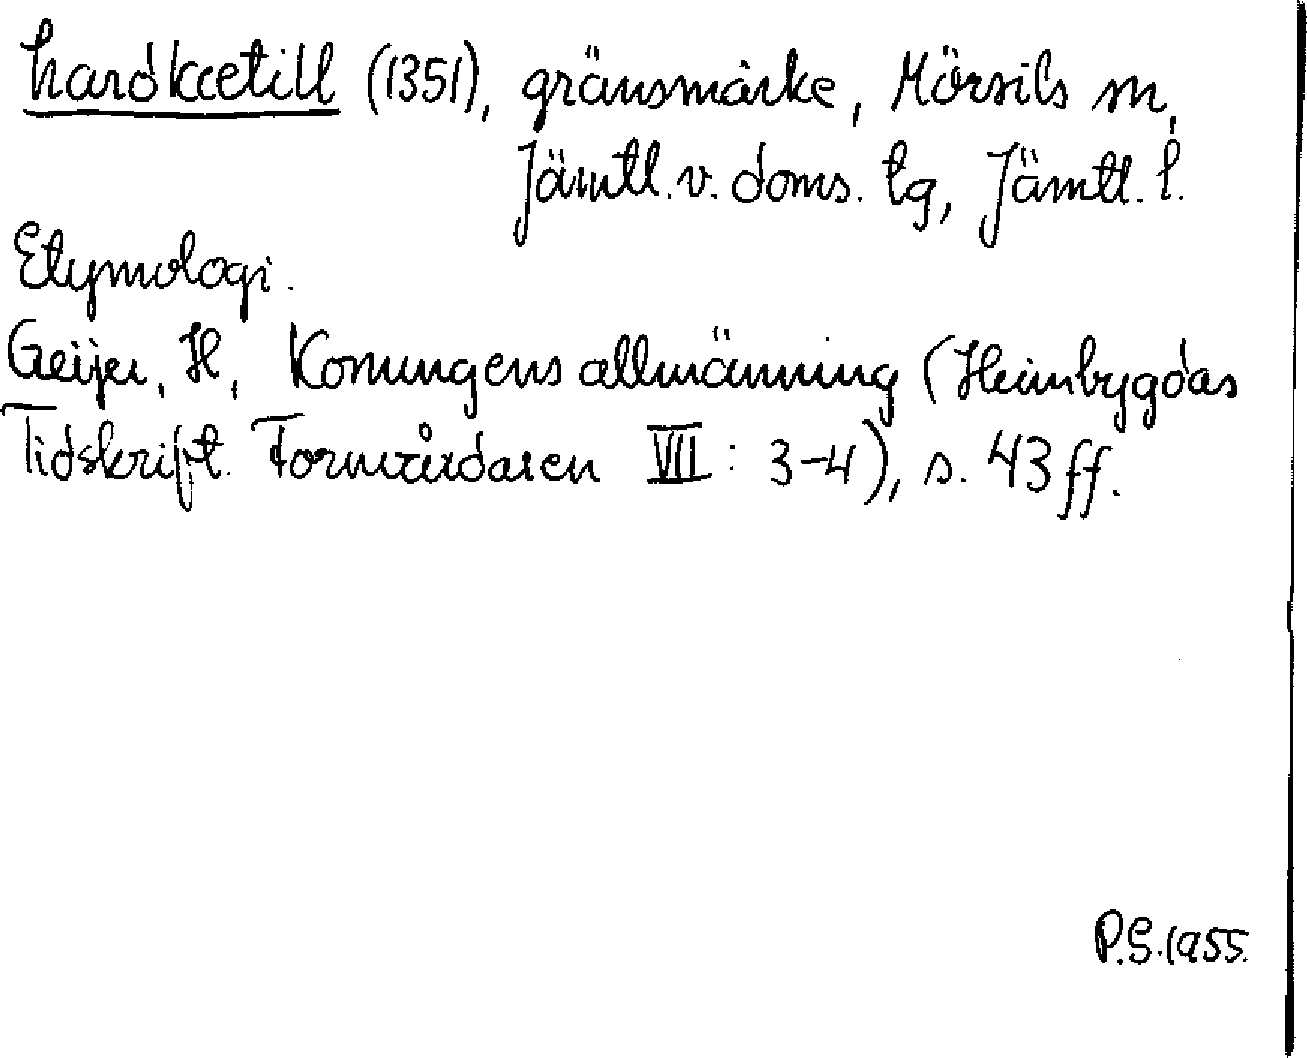 hardkætill (1351), gränsmärke, Mörsils sn,
Jämtl. v. doms. tg, Jämtl. l.
Etymologi.
Geijer, H, Konungens allmänning (Heimbygdas
Tidskrift. Fornvårdaren VII: 3-4), s. 43 ff.
P.S. 1955.